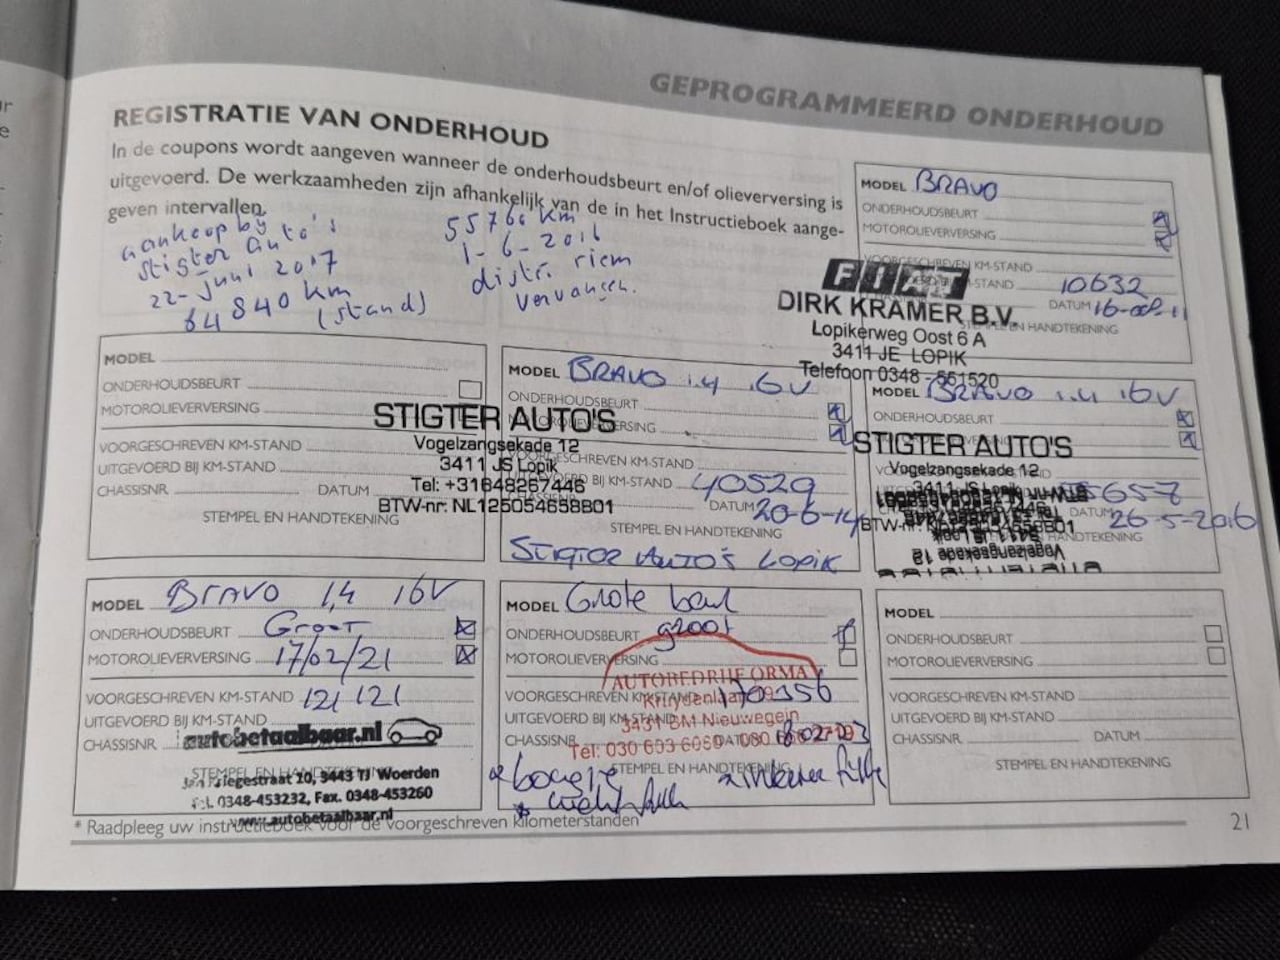 GEPROGRAMMEERD ONDERHOUD
REGISTRATIE VAN ONDERHOUD
In de coupons wordt aangeven wanneer de onderhoudsbeurt en/of olieverversing is
uitgevoerd. De werkzaamheden zijn afhankelijk van de in het Instructieboek aange-
geven intervallen.
aankoop bij
Stigter Auto's
22-Juni 2017
64 840 km
(stand)
55760 km
1-6-2016
distr. riem
vervangen.
MODEL BRAVO
ONDERHOUDSBEURT
MOTOROLIEVERVERSING
VOORGESCHREVEN KM-STAND
KM-STAND 10632
DATUM
STEMPEL EN HANDTEKENING
FIAT
DIRK KRAMER B.V.
Lopikerweg Oost 6 A
3411 JE LOPIK
Telefoon 0348 - 551520
MODEL
ONDERHOUDSBEURT
MOTOROLIEVERVERSING
VOORGESCHREVEN KM-STAND
UITGEVOERD BIJ KM-STAND
CHASSISNR. DATUM
STEMPEL EN HANDTEKENING
STIGTER AUTO'S
Vogelzangsekade 12
3411 JS Lopik
Tel: +31648267446
BTW-nr: NL125054658B01
MODEL BRAVO 1.4 16V
ONDERHOUDSBEURT
MOTOROLIEVERVERSING
VOORGESCHREVEN KM-STAND
UITGEVOERD BIJ KM-STAND 40529
DATUM 20-6-14
STEMPEL EN HANDTEKENING
STIGTER AUTO'S LOPIK
MODEL BRAVO 1.4 16V
ONDERHOUDSBEURT
STIGTER AUTO'S
Vogelzangsekade 12
3411 JS Lopik
DATUM 26-5-2016
BTW-nr:
HANDTEKENING
MODEL BRAVO 1,4 16V
ONDERHOUDSBEURT Groot
MOTOROLIEVERVERSING 17/02/21
VOORGESCHREVEN KM-STAND 121 121
UITGEVOERD BIJ KM-STAND
CHASSISNR
autobetaalbaar.nl
STEMPEL EN HANDTEKENING
10, 3443 TJ Woerden
Tel. 0348-453232, Fax. 0348-453260
www.autobetaalbaar.nl
MODEL Grote beurt
ONDERHOUDSBEURT groot
MOTOROLIEVERVERSING
AUTOBEDRIJF ORMAY
VOORGESCHREVEN KM-STAND 170356
UITGEVOERD BIJ KM-STAND
3431 BM Nieuwegein
CHASSISNR
Tel: 030 603 6050
STEMPEL EN HANDTEKENING
* bougie
* interieur filter
* luchtfilter
MODEL
ONDERHOUDSBEURT
MOTOROLIEVERVERSING
VOORGESCHREVEN KM-STAND
UITGEVOERD BIJ KM-STAND
CHASSISNR. DATUM
STEMPEL EN HANDTEKENING
* Raadpleeg uw instructieboek voor de voorgeschreven kilometerstanden
21